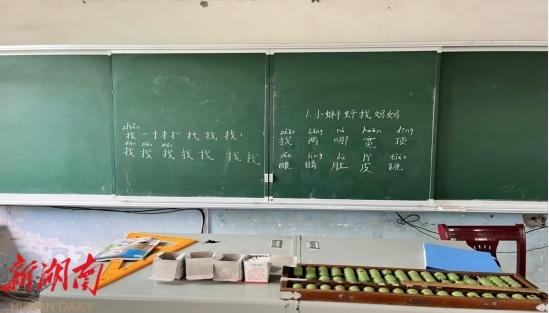 zhǎo
找 一 十 扌 扌 找 找 找
zhǎo zhǎo zhǎo
找 找 找 找 找 找 找
1.小蝌蚪找妈妈
zhǎo liǎng nǎ kuān dǐng
找 两 哪 宽 顶
yǎn jīng dù pí tiào
眼 睛 肚 皮 跳
新湖南
HUNAN DAILY